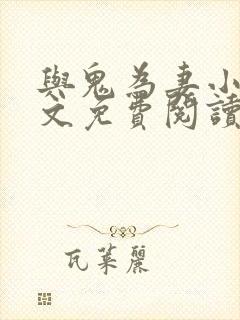 與鬼為妻小
文免費閱讀
瓦萊麗